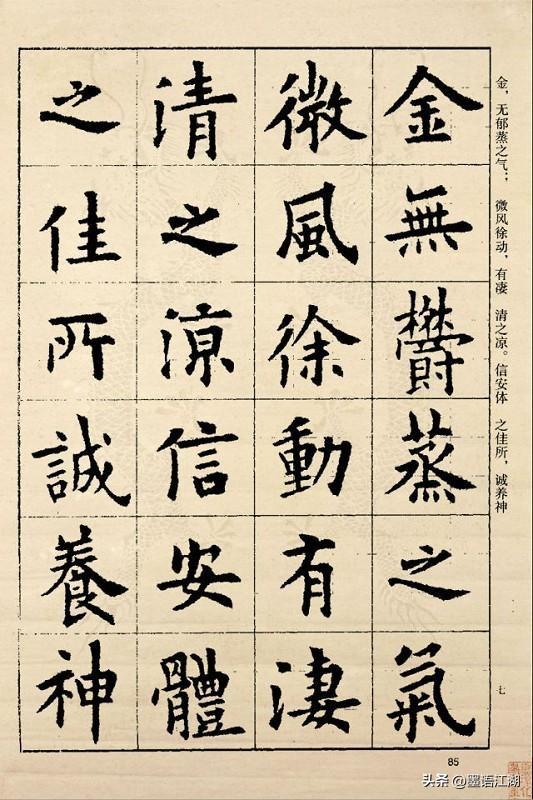 金，无郁蒸之气；微风徐动，有凄清之凉。信安体之佳所，诚养神
金無鬱蒸之氣
微風徐動有淒
清之涼信安體
之佳所誠養神
七
85
头条 @墨语江湖